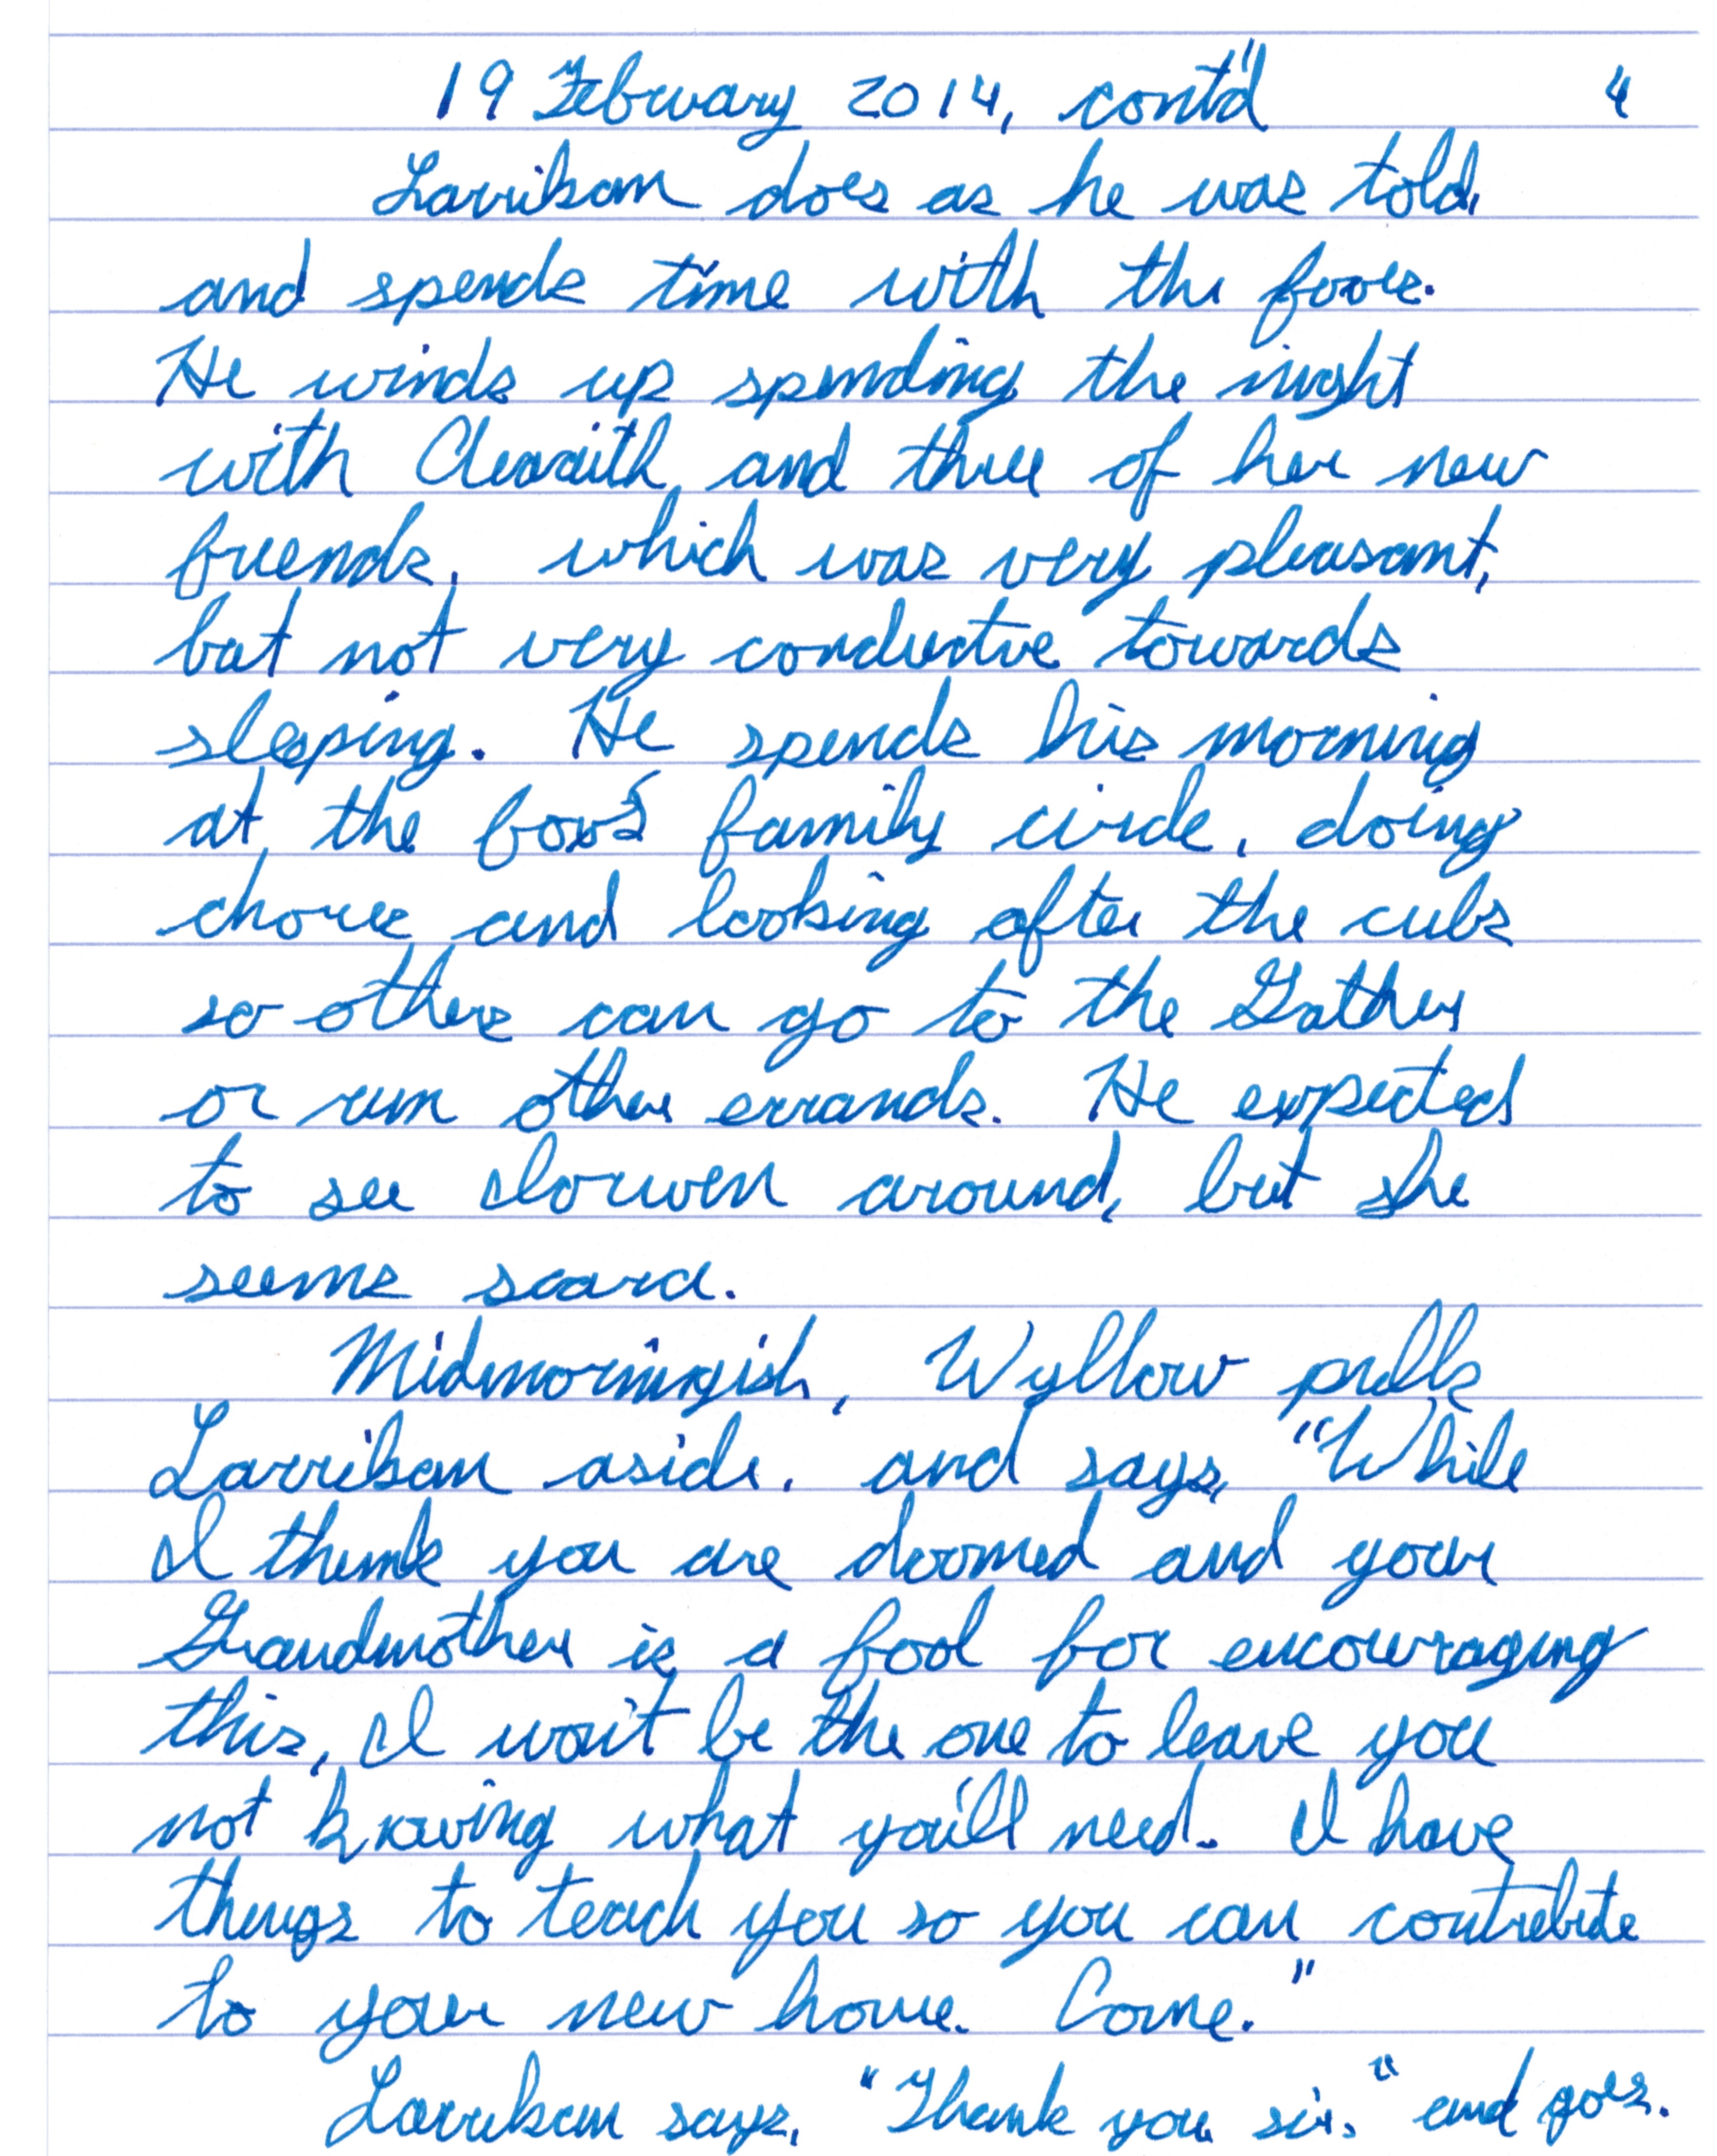 19 February 2014, cont'd 4
Larrikan does as he was told,
and spends time with the foxes.
He winds up spending the night
with Clexaith, and three of her new
friends, which was very pleasant,
but not very conducive towards
sleeping. He spends his morning
at the foxs' family circle, doing
chores and looking after the cubs
so others can go to the Gather
or run other errands. He expected
to see Iorwen around, but she
seems scarce.
Midmorningish, Wyllow pulls
Larrikan aside, and says, "While
I think you are doomed and your
Grandmother is a fool for encouraging
this, I won't be the one to leave you
not knowing what you'll need. I have
things to teach you so you can contribute
to your new home. Come."
Larrikan says, "Thank you, sir," and goes.